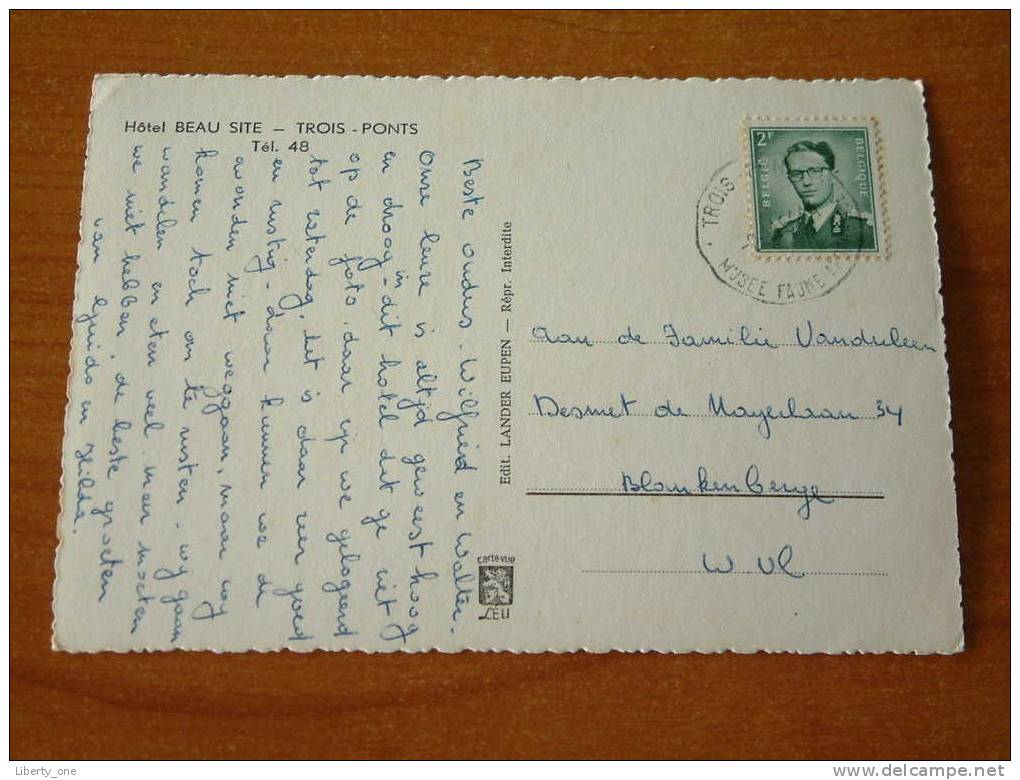 Hôtel BEAU SITE — TROIS - PONTS
Tél. 48
Beste ouders, Wilfried en Walter.
Onze leuze is altijd geweest hoog
en droog - dit hotel dat ge ziet
in
op de foto. daar zijn we gelogeerd
tot zaterdag, het is daar zeer goed
en rustig - daar kunnen we de
avonden niet weggaan, maar wij
komen toch om te rusten - wij gaan
wandelen en eten veel. meer moeten
we niet hebben. de beste groeten
van Guido en Hilda.
Edit. LANDER EUPEN — Répr. Interdite
carte vue
LEU
2F
BELGIE
BELGIQUE
TROIS
MUSEE FAUNE
Aan de Familie
Desmet de Nayerlaan 34
Blankenberge
W Vl
Liberty_one
http://www.delcampe.net